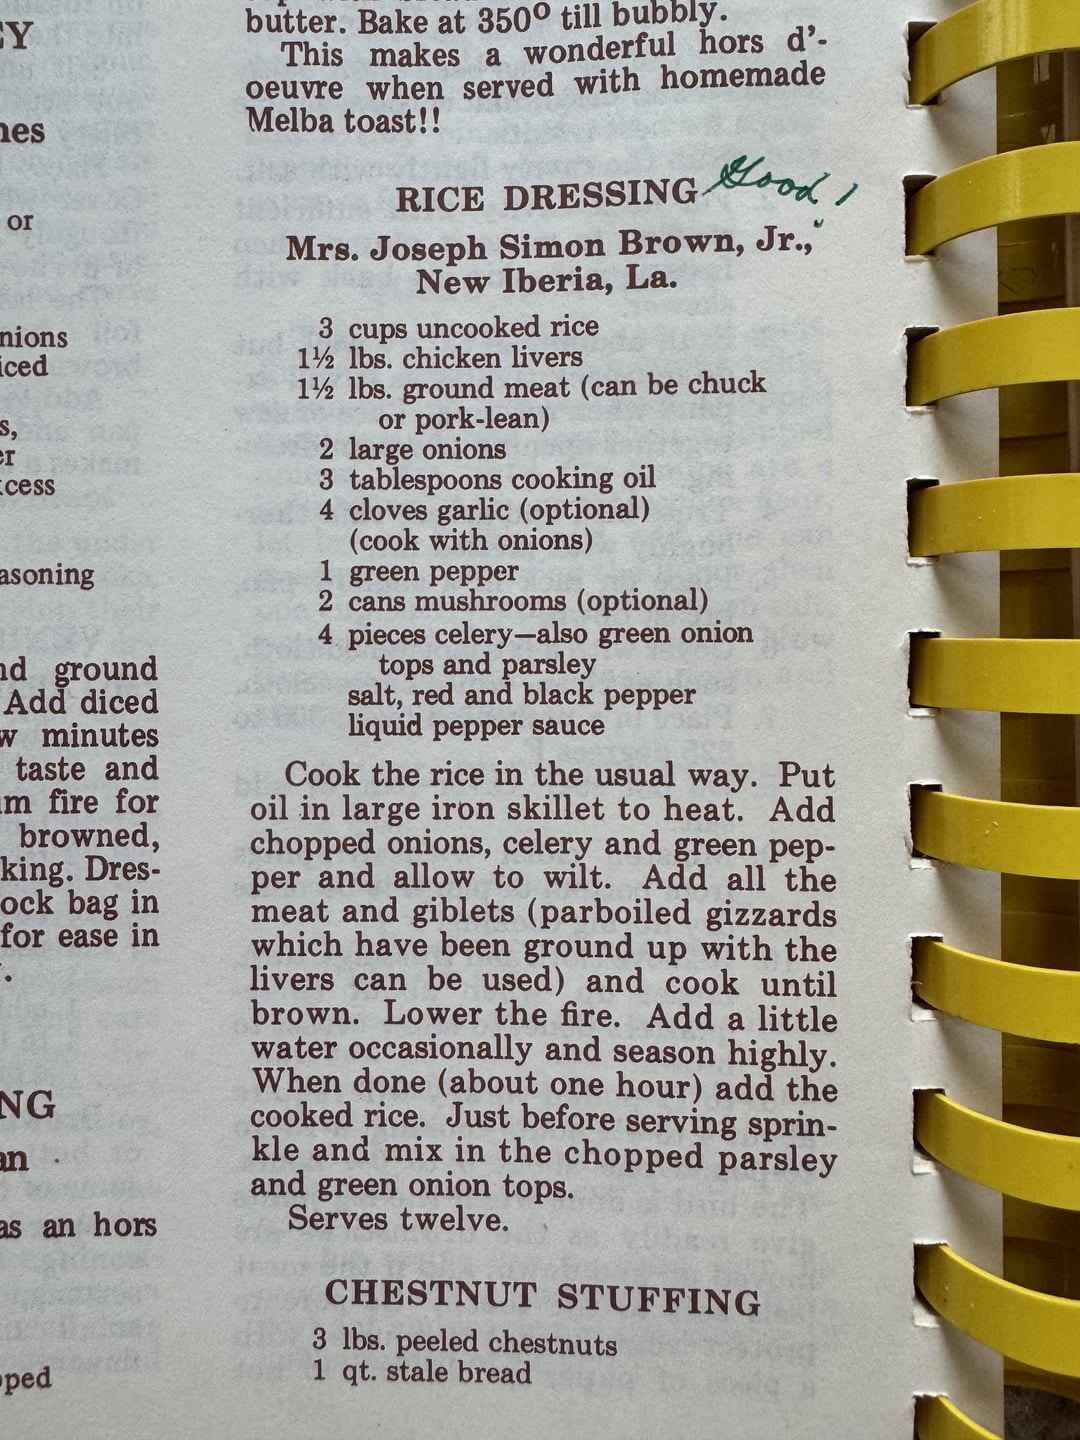 EY
nes
or
nions
iced
s,
er
cess
asoning
nd ground
Add diced
w minutes
taste and
m fire for
browned,
king. Dres-
ock bag in
for ease in
NG
an
as an hors
pped
butter. Bake at 350º till bubbly.
This makes a wonderful hors d'-
oeuvre when served with homemade
Melba toast!!
RICE DRESSING Good!
Mrs. Joseph Simon Brown, Jr.,
New Iberia, La.
3 cups uncooked rice
1½ lbs. chicken livers
1½ lbs. ground meat (can be chuck
or pork-lean)
2 large onions
3 tablespoons cooking oil
4 cloves garlic (optional)
(cook with onions)
1 green pepper
2 cans mushrooms (optional)
4 pieces celery—also green onion
tops and parsley
salt, red and black pepper
liquid pepper sauce
Cook the rice in the usual way. Put
oil in large iron skillet to heat. Add
chopped onions, celery and green pep-
per and allow to wilt. Add all the
meat and giblets (parboiled gizzards
which have been ground up with the
livers can be used) and cook until
brown. Lower the fire. Add a little
water occasionally and season highly.
When done (about one hour) add the
cooked rice. Just before serving sprin-
kle and mix in the chopped parsley
and green onion tops.
Serves twelve.
CHESTNUT STUFFING
3 lbs. peeled chestnuts
1 qt. stale bread